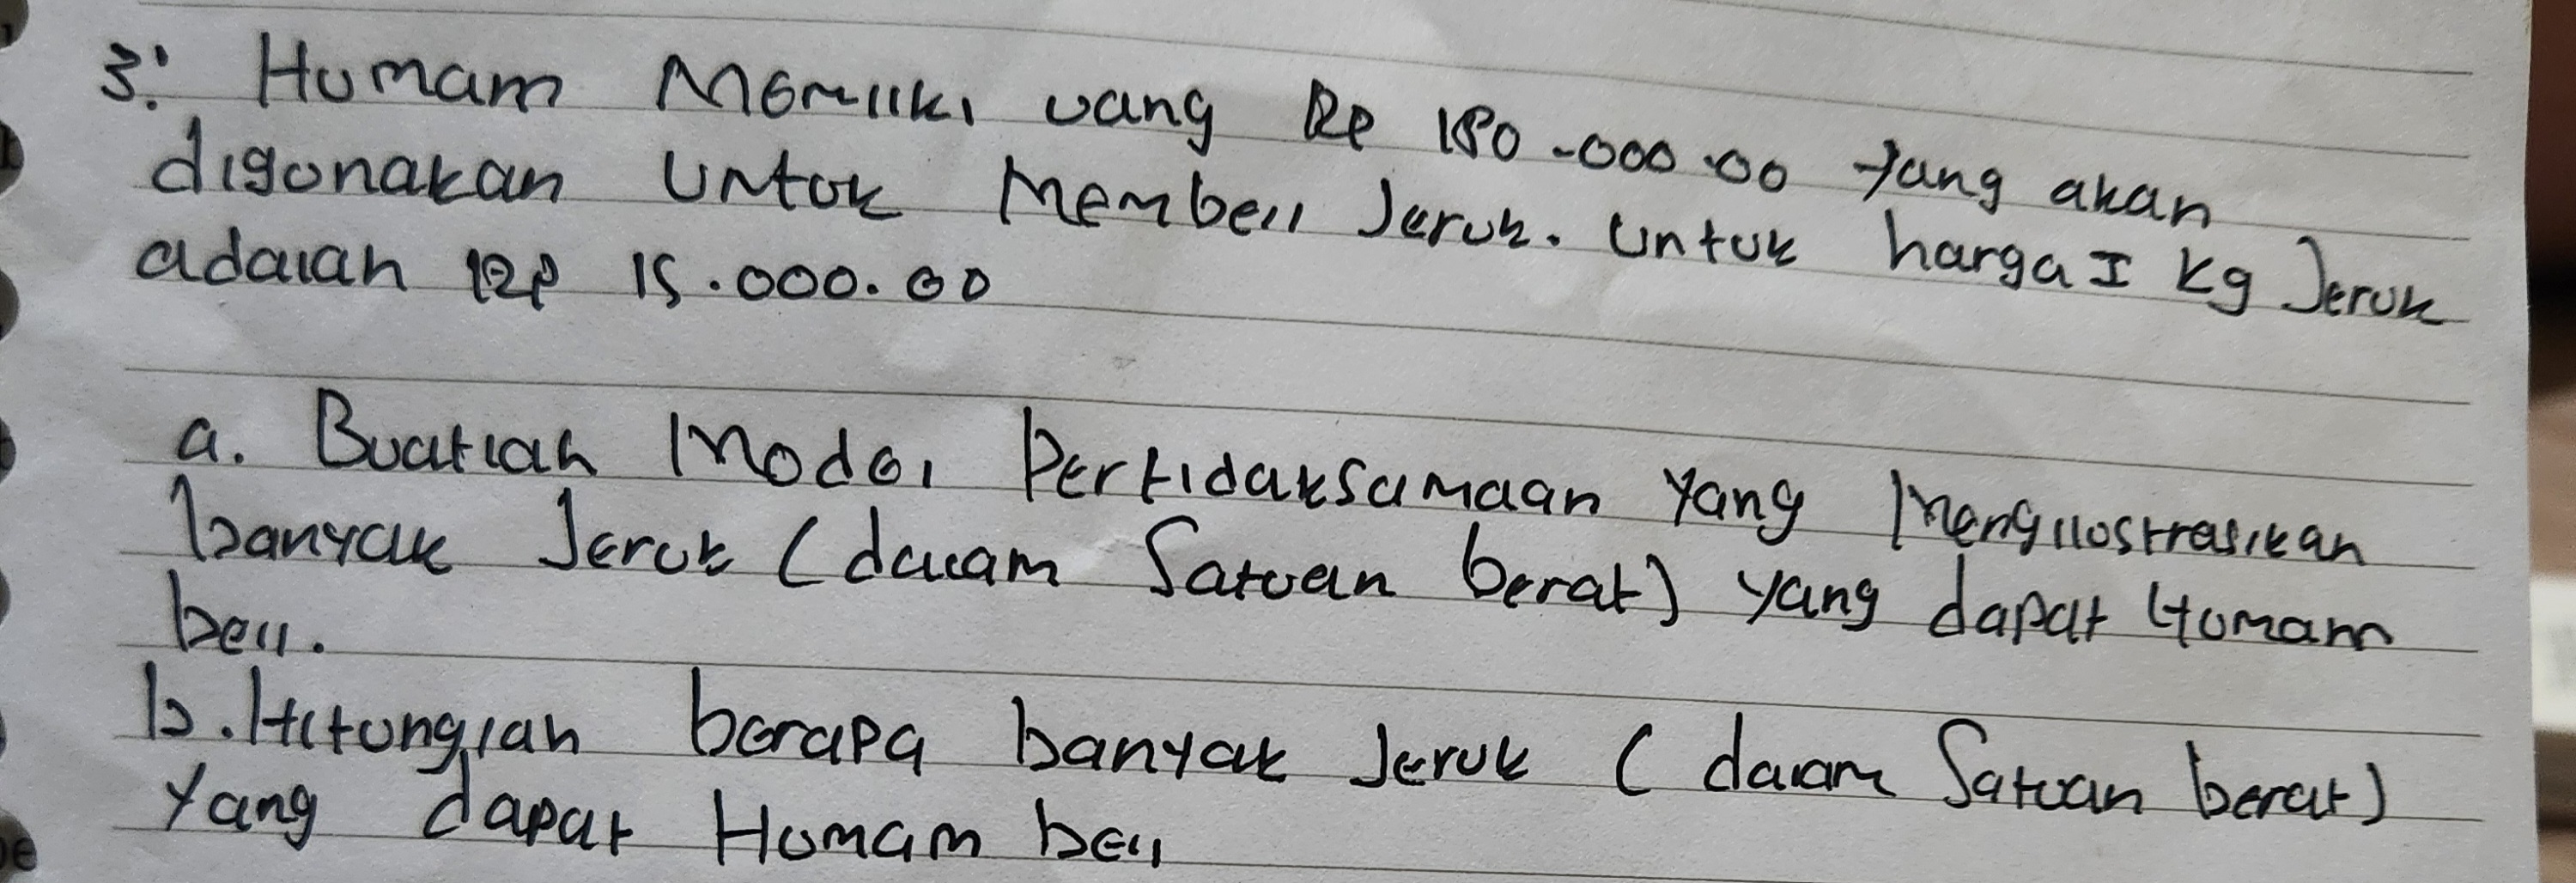 3. Humam Memiliki uang Rp 180.000.00 yang akan
digunakan untuk Membeli Jeruk. Untuk harga I kg Jeruk
adalah Rp 15.000.00
a. Buatlah Model Pertidaksamaan yang Mengilustrasikan
banyak Jeruk (dalam Satuan berat) yang dapat Humam
beli.
b. Hitunglah berapa banyak Jeruk (dalam Satuan berat)
yang dapat Humam beli